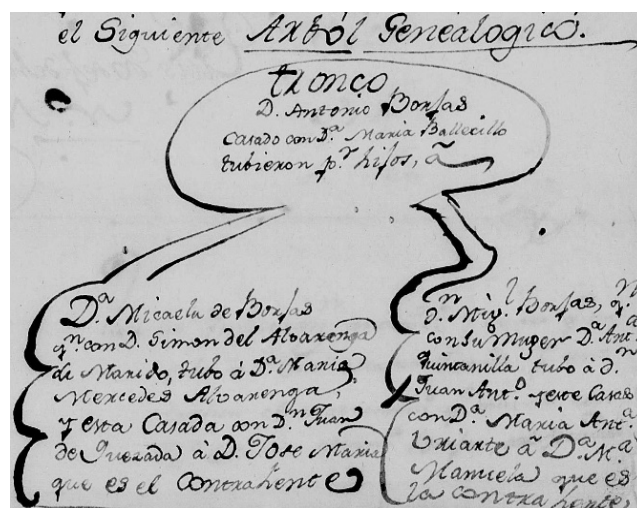 el Siguiente Axból Genealogicó.
tronco
D. Antonio Borjas
Casado con D.ª Maria Ballecillo
tubieron p.r hijos, â
D.ª Micaela de Borjas
q.n con D. Simon del Alvarenga
de Marido, tubo â D.ª Maria
Mercedes Alvarenga,
y esta Casada con D.n Juan
de Quezada â D. Jose Maria
que es el contrahente
D.n Mig.l Borjas, q.n
con su Muger D.ª Ant.ª
Quintanilla tubo â d.n
Juan Ant.o y este Casas
con D.ª Maria Ant.ª
Uriarte â D.ª M.ª
Manuela que es
la contra hente,